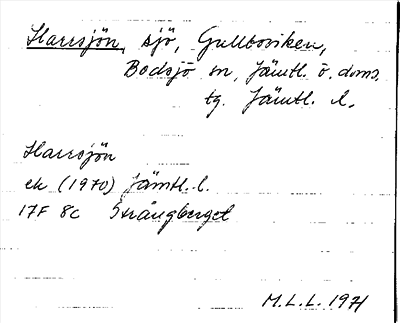 Harrsjön, sjö, Gullboviken,
Bodsjö sn, Jämtl. ö. doms.
tg. Jämtl. l.
Harrsjön
ek (1970) Jämtl. l.
17F 8c Strångberget
M.L.L. 1971